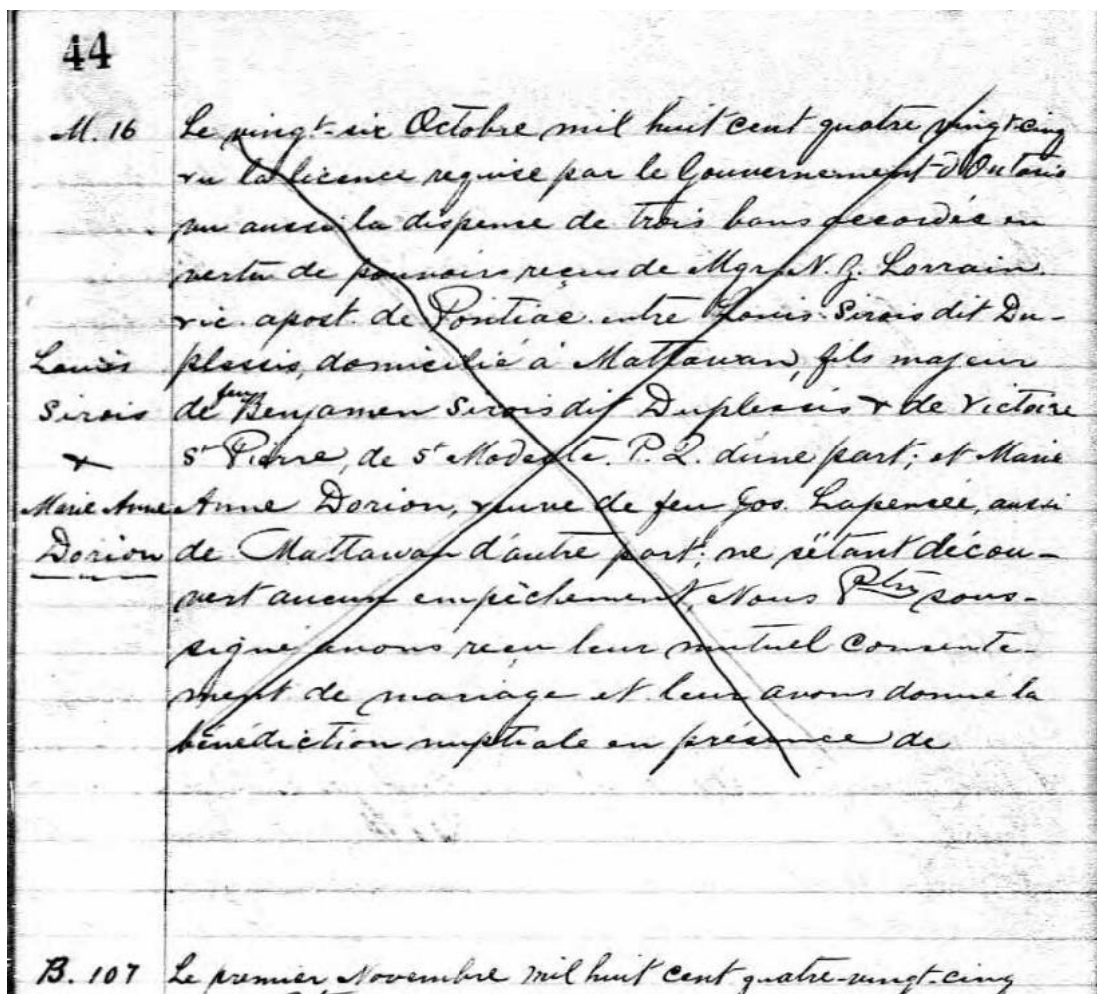 44
M. 16
Le vingt-six Octobre mil huit cent quatre vingt-cinq
vu la licence requise par le Gouvernement d'Ontario
vu aussi la dispense de trois bans accordée en
vertu de pouvoirs reçus de Mgr N. Z. Lorrain
vic. apost. de Pontiac entre Louis Sirois dit Du-
Louis
plessis, domicilié à Mattawan, fils majeur
Sirois
de feu Benjamen Sirois dit Duplessis & de Victoire
+
St Pierre, de St Modeste. P. Q. d'une part; et Marie
Marie Anne
Anne Dorion, veuve de feu Jos. Lapensée, aussi
Dorion
de Mattawan d'autre part; ne s'étant décou-
vert aucun empêchement, Nous Ptre sous-
signé avons reçu leur mutuel consente-
ment de mariage et leur avons donné la
bénédiction nuptiale en présence de
B. 107
Le premier Novembre mil huit cent quatre-vingt-cinq